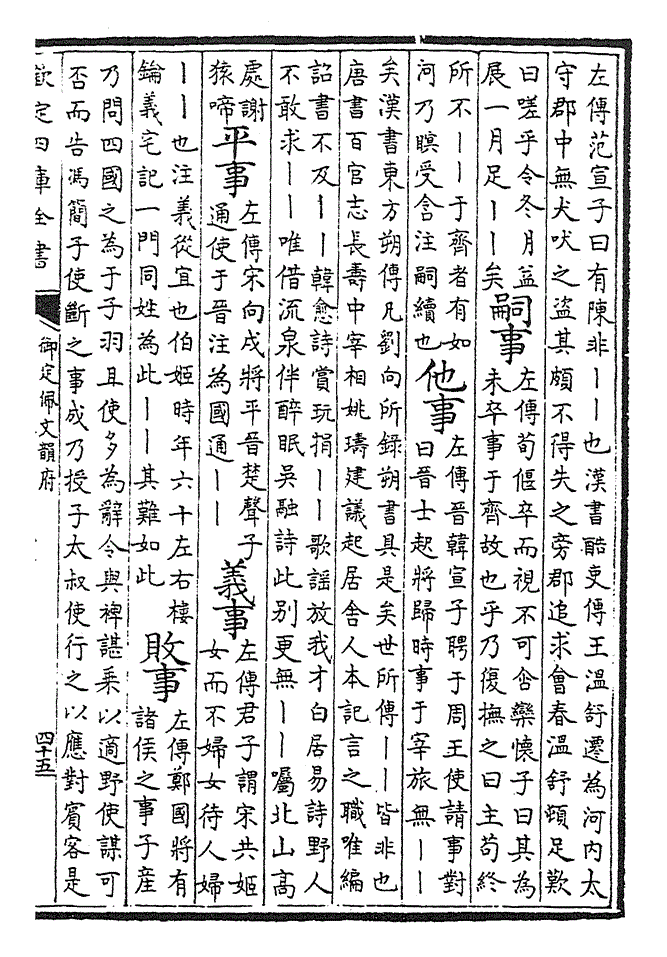 左傳范宣子曰有陳非丨丨也漢書酷吏傳王溫舒遷為河内太
守郡中無犬吠之盜其頗不得失之旁郡追求會春溫舒頓足歎
曰嗟乎令冬月益
展一月足丨丨矣
嗣事
左傳荀偃卒而視不可含欒懷子曰其為
未卒事于齊故也乎乃復撫之曰主荀終
所不丨丨于齊者有如
河乃瞑受含注嗣續也
他事
左傳晉韓宣子聘于周王使請事對
曰晉士起將歸時事于宰旅無丨丨
矣漢書東方朔傳凡劉向所錄朔書具是矣世所傳丨丨皆非也
唐書百官志長壽中宰相姚璹建議起居舍人本記言之職唯編
詔書不及丨丨韓愈詩賞玩捐丨丨歌謠放我才白居易詩野人
不敢求丨丨唯借流泉伴醉眠吳融詩此別更無丨丨囑北山高
處謝
猿啼
平事
左傳宋向戌將平晉楚聲子
通使于晉注為國通丨丨
義事
左傳君子謂宋共姬
女而不婦女待人婦
丨丨也注義從宜也伯姬時年六十左右棲
鑰義宅記一門同姓為此丨丨其難如此
敗事
左傳鄭國將有
諸侯之事子産
乃問四國之為于子羽且使多為辭令與裨諶乘以適野使謀可
否而告馮簡子使斷之事成乃授子太叔使行之以應對賓客是
欽定四庫全書
御定佩文韻府
四十五